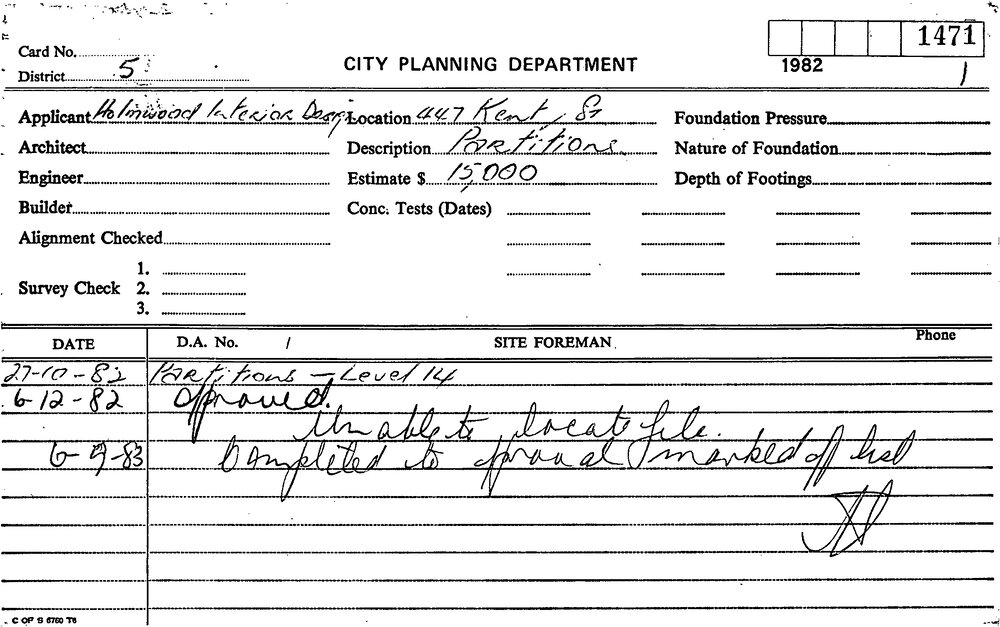 1471
Card No.
1982
District 5
CITY PLANNING DEPARTMENT
1
Applicant Holmwood Interior Design Location 447 Kent, St Foundation Pressure
Architect Description Partitions Nature of Foundation
Engineer Estimate $ 15,000 Depth of Footings
Builder Conc. Tests (Dates)
Alignment Checked
1.
Survey Check 2.
3.
DATE D.A. No. / SITE FOREMAN Phone
27-10-82 Partitions - Level 14
6-12-82 Aproved.
Unable to locate file.
6-9-83 Completed to aproval marked off list
C OF S 6760 T6